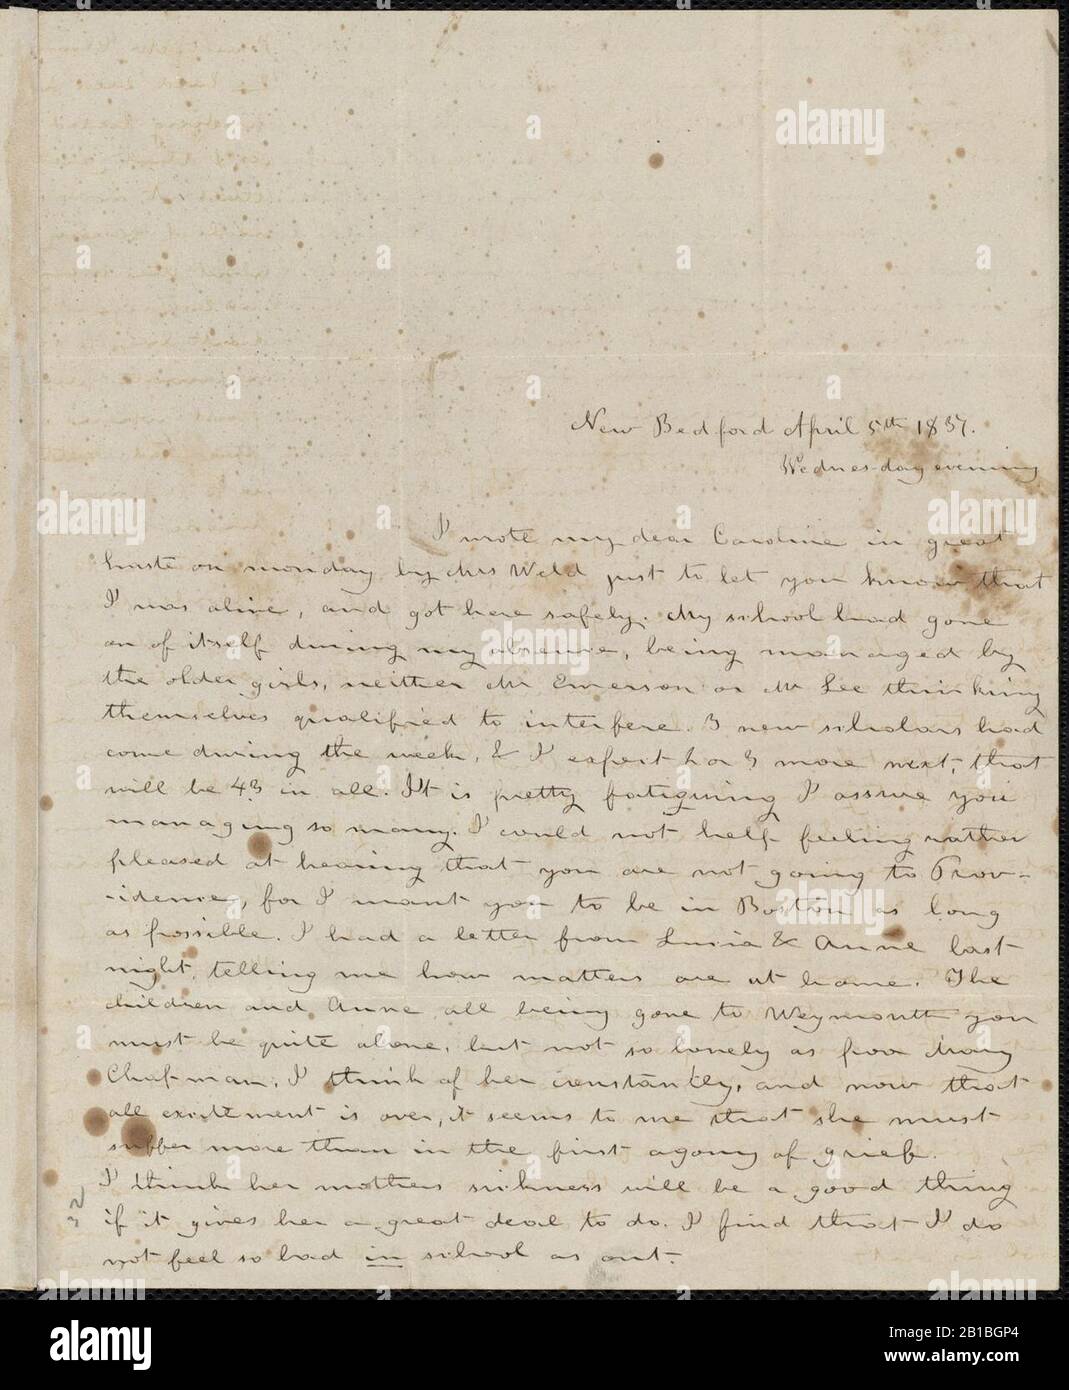 New Bedford April 5th 1837.
Wednesday evening
I wrote my dear Caroline in great
haste on monday by Mrs Weld just to let you know that
I was alive, and got here safely. My school had gone
on of itself during my absence, being managed by
the older girls, neither Mr Emerson or Mr Lee thinking
themselves qualified to interfere. 3 new scholars had
come during the week, & I expect 2 or 3 more next, that
will be 43 in all. It is pretty fatiguing I assure you
managing so many. I could not help feeling rather
pleased at hearing that you are not going to Prov-
-idence, for I want you to be in Boston as long
as possible. I had a letter from Lucia & Anne last
night, telling me how matters are at home. The
children and Anne all being gone to Weymouth you
must be quite alone, but not so lonely as poor Mary
Chapman. I think of her constantly, and now that
all excitement is over, it seems to me that she must
suffer more than in the first agony of grief.
I think her mothers sickness will be a good thing
if it gives her a great deal to do. I find that I do
not feel so bad in school as out.
alamy
alamy
Image ID: 2B1BGP4
www.alamy.com